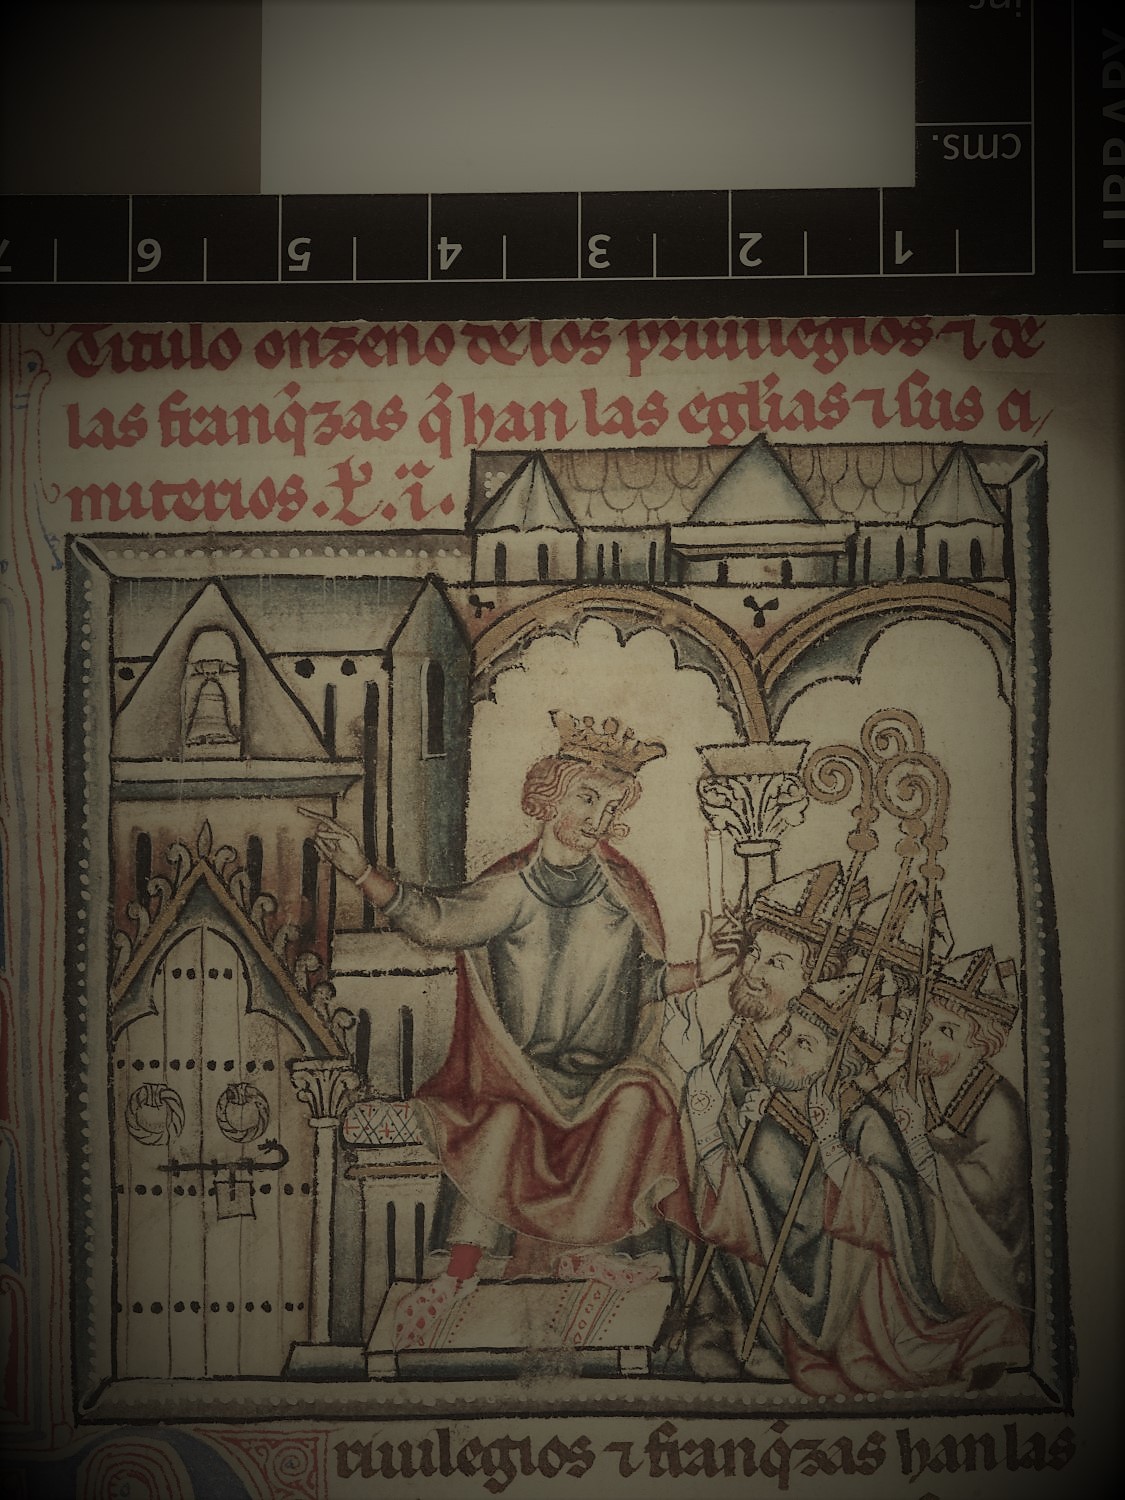 ins
cms.
LIBRARY
7 6 5 4 3 2 1
Titulo onzeno de los priuilegios ⁊ de
las franq̍zas q̍ han las egłias ⁊ sus ci/
miterios. L. i.
riuilegios ⁊ franq̍zas han las